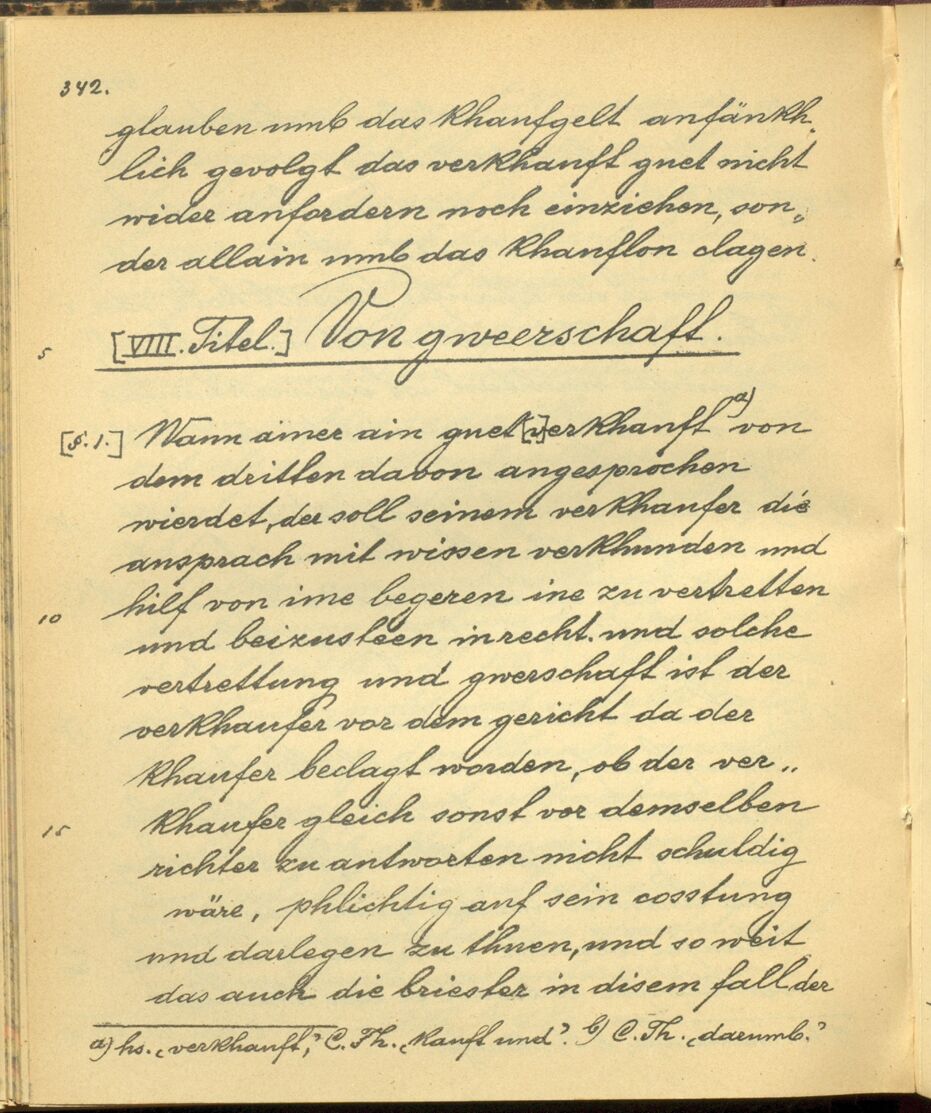 342.
glauben umb das khaufgelt anfänkh„
lich gevolgt das verkhauft guet nicht
wider anfordern noch einziehen, son„
der allain umb das khauflon clagen.
5 [VIII. Titel.] Von gweerschaft.
[§. 1.] Wann ainer ain guet [v]erkhauft a) von
dem dritten davon angesprochen
wierdet, der soll seinem verkhaufer die
ansprach mit wissen verkhunden und
10 hilf von ime begeren ine zu vertretten
und beizusteen in recht. und solche
vertrettung und gwerschaft ist der
verkhaufer vor dem gericht da der
khaufer beclagt worden, ob der ver„
15 khaufer gleich sonst vor demselben
richter zu antworten nicht schuldig
wäre, phlichtig auf sein cosstung
und darlegen zu thuen, und so weit
das auch die briester in disem fall der
a) hs. „verkhauft“, C. Th. „kauft und“. b) C. Th. „darumb“